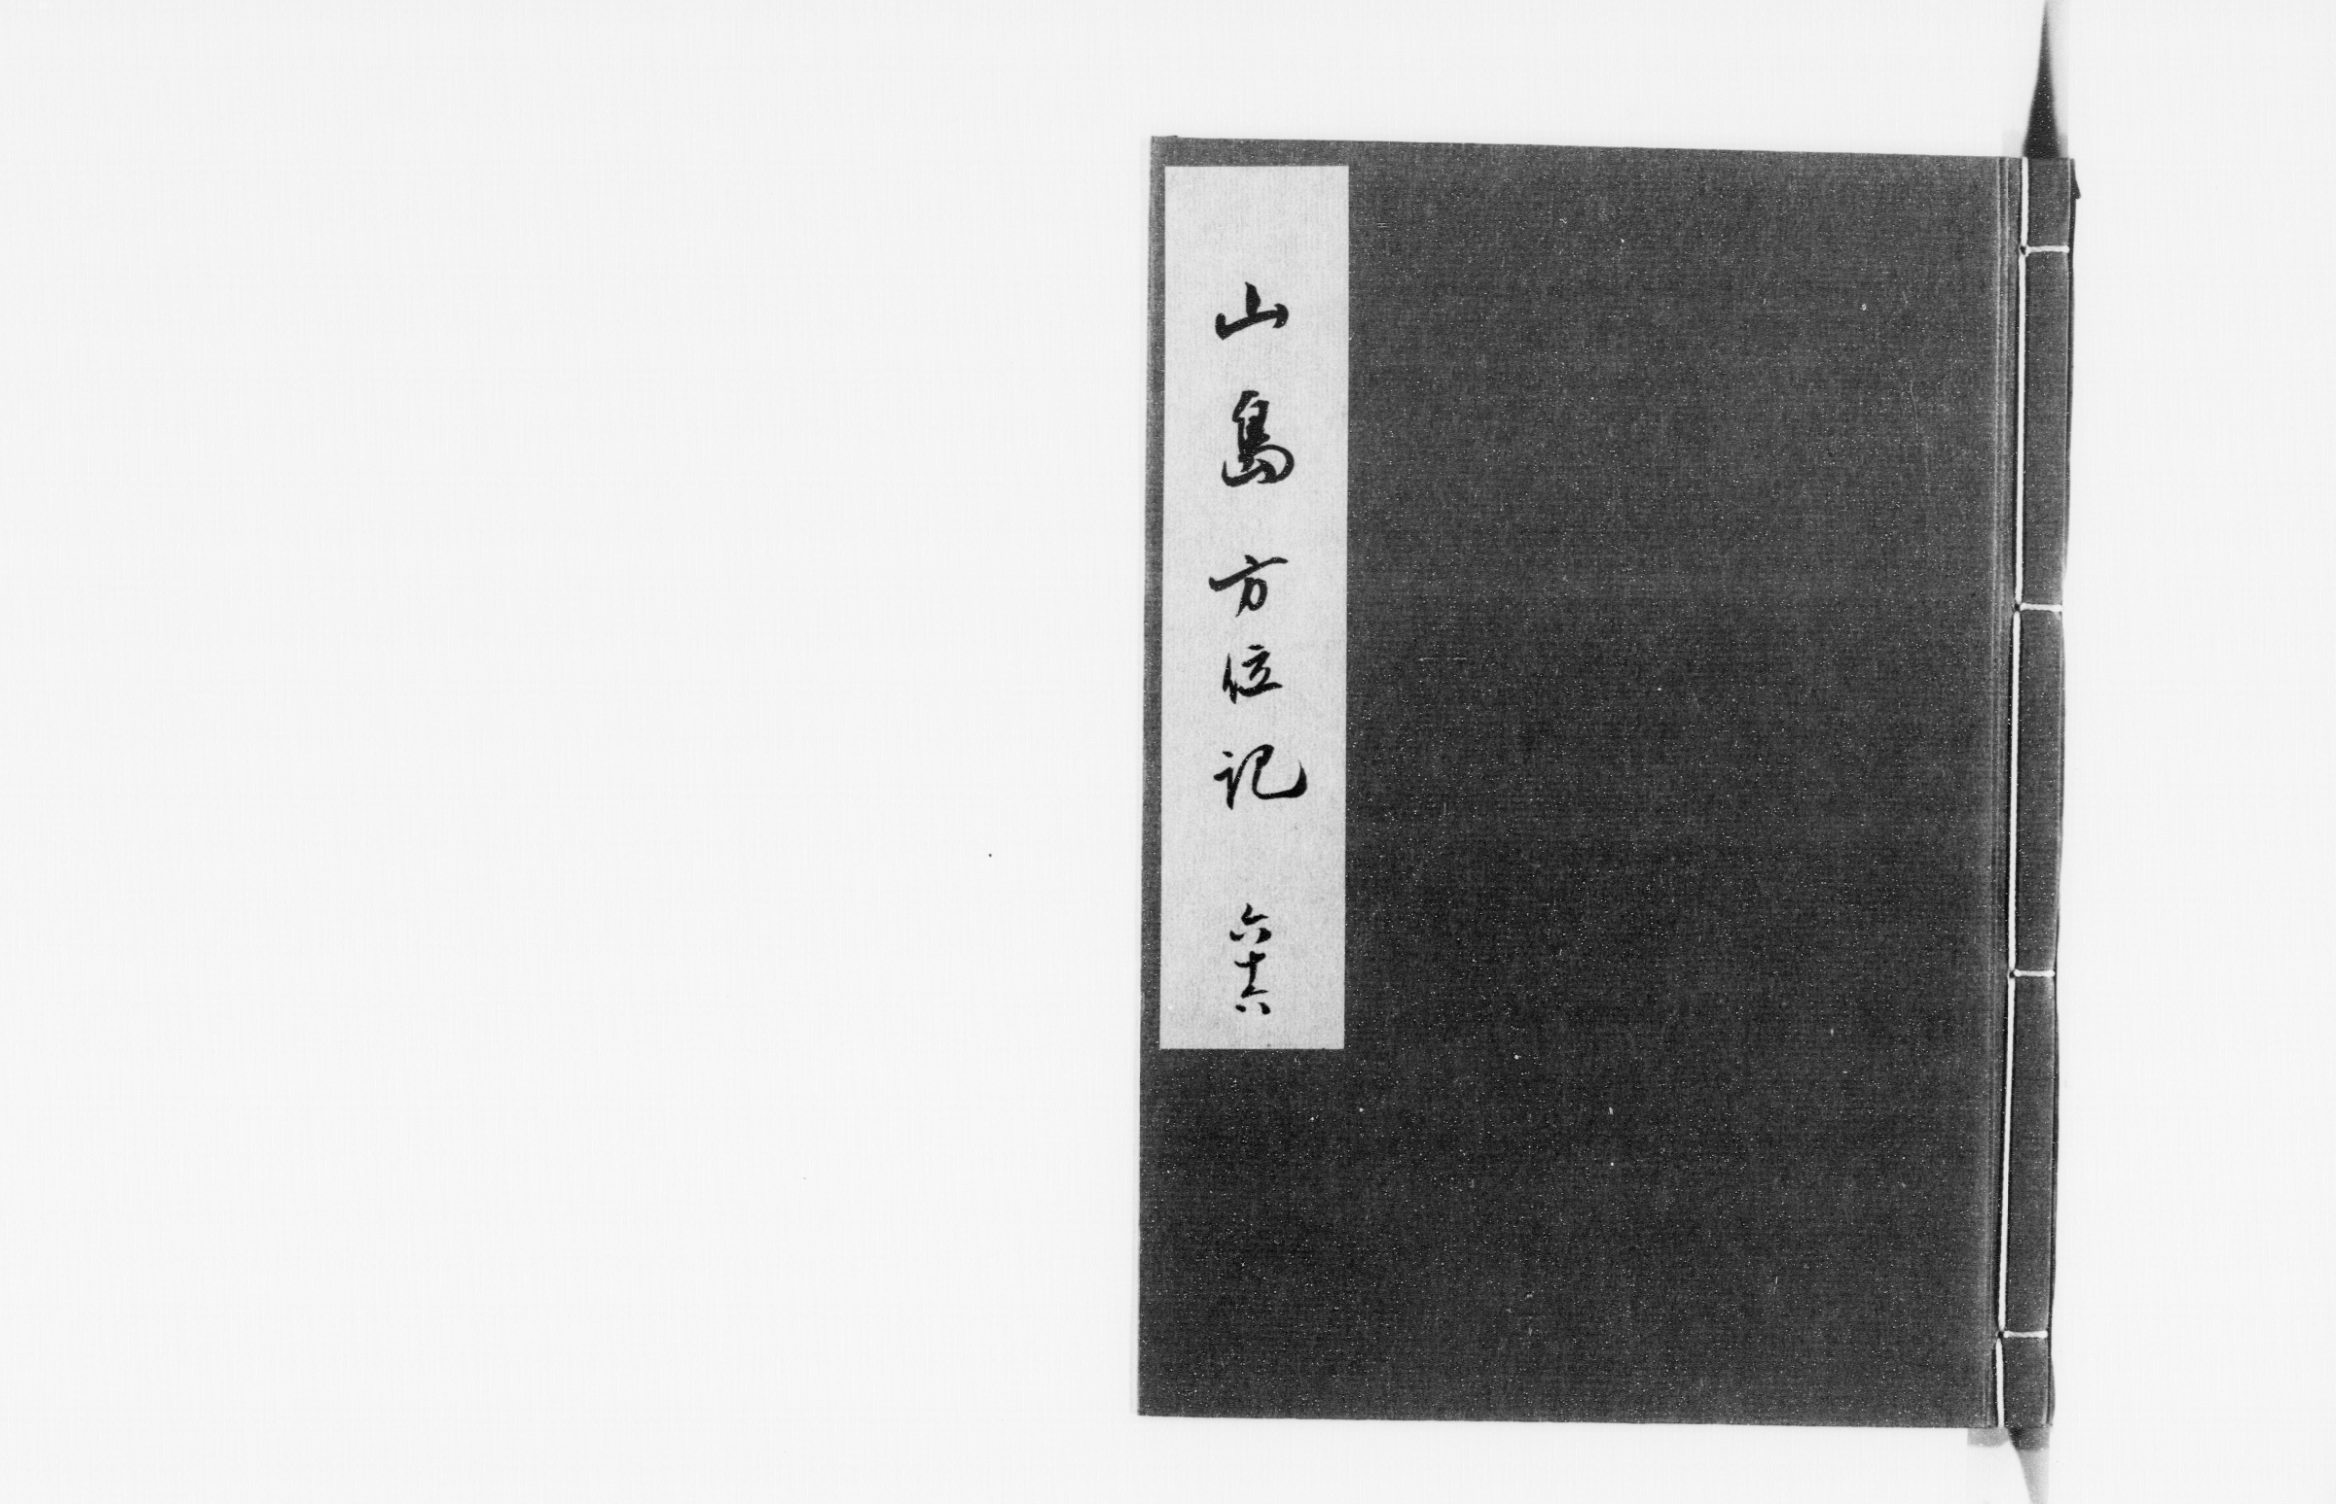 山島方位記 六十六